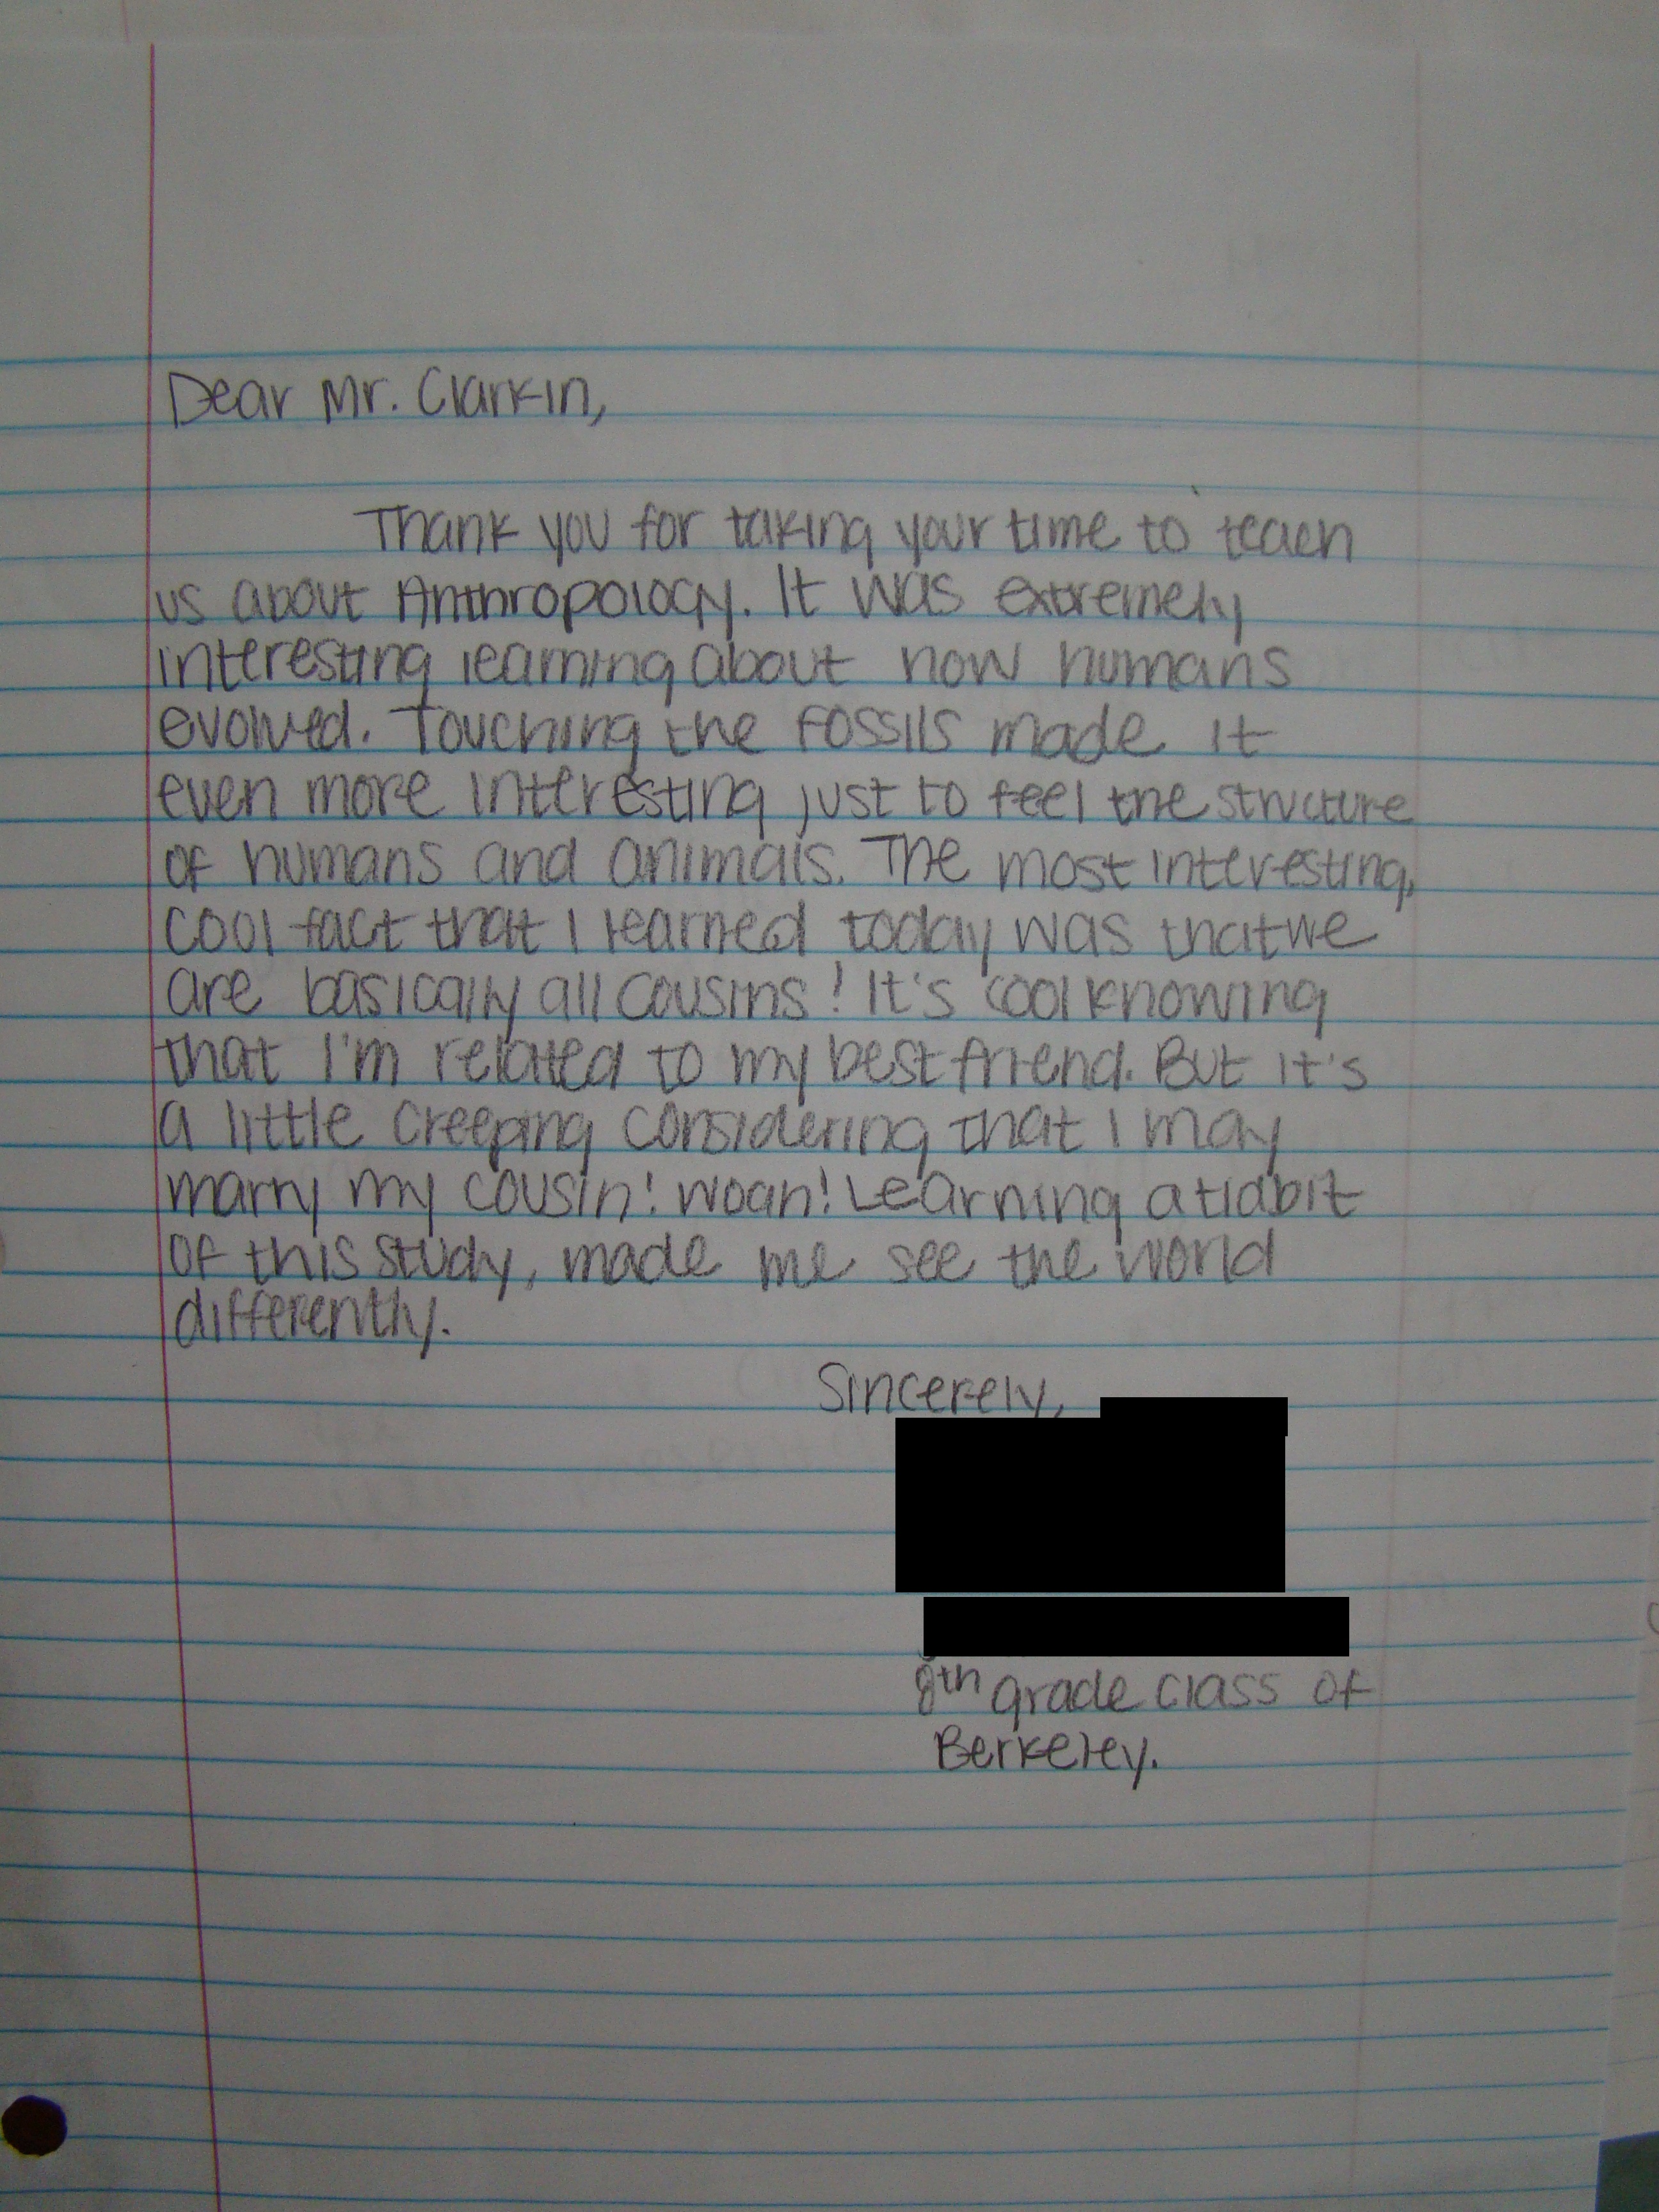 Dear Mr. Clarkin,
Thank you for taking your time to teach
us about Anthropology. It was extremely
interesting learning about how humans
evolved. Touching the fossils made it
even more interesting just to feel the structure
of humans and animals. The most interesting,
cool fact that I learned today was that we
are basically all cousins! It's cool knowing
that I'm related to my best friend. But it's
a little creeping considering that I may
marry my cousin! Woah! Learning a tidbit
of this study, made me see the world
differently.
Sincerely,
8th grade class of
Berkeley.